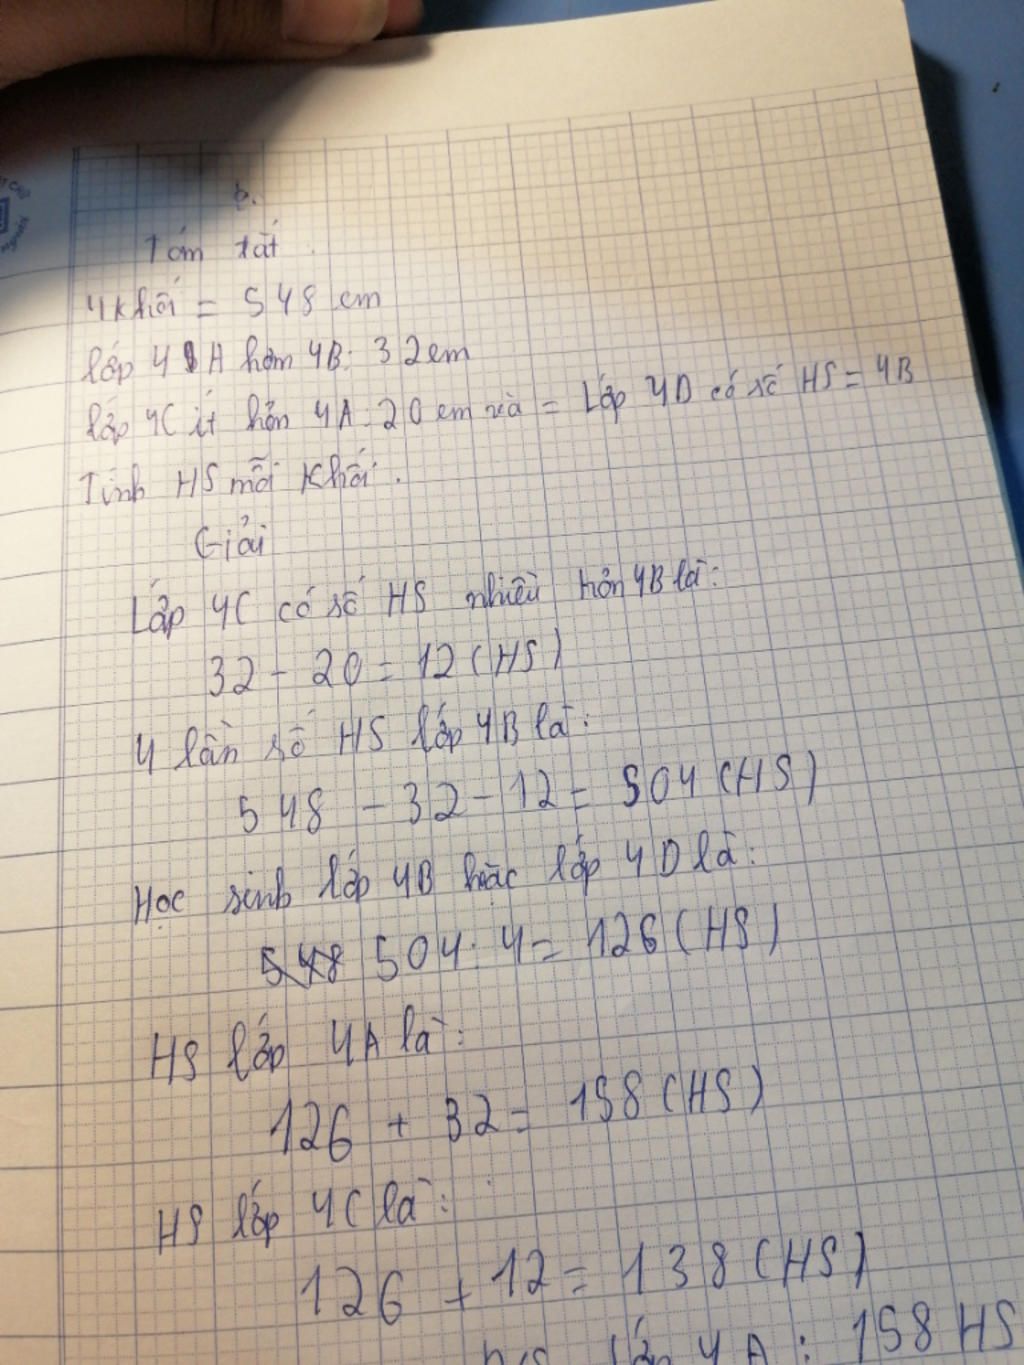 b.
Tóm tắt.
4 khối = 548 em
lớp 4A hơn 4B: 32 em
lớp 4C ít hơn 4A: 20 em và = Lớp 4D có số HS = 4B
Tính HS mỗi khối.
Giải
Lớp 4C có số HS nhiều hơn 4B là:
32 - 20 = 12 (HS)
4 lần số HS lớp 4B là:
548 - 32 - 12 = 504 (HS)
Học sinh lớp 4B hoặc lớp 4D là:
548 504 : 4 = 126 (HS)
HS lớp 4A là:
126 + 32 = 158 (HS)
HS lớp 4C là:
126 + 12 = 138 (HS)
Đ/S lớp 4A: 158 HS